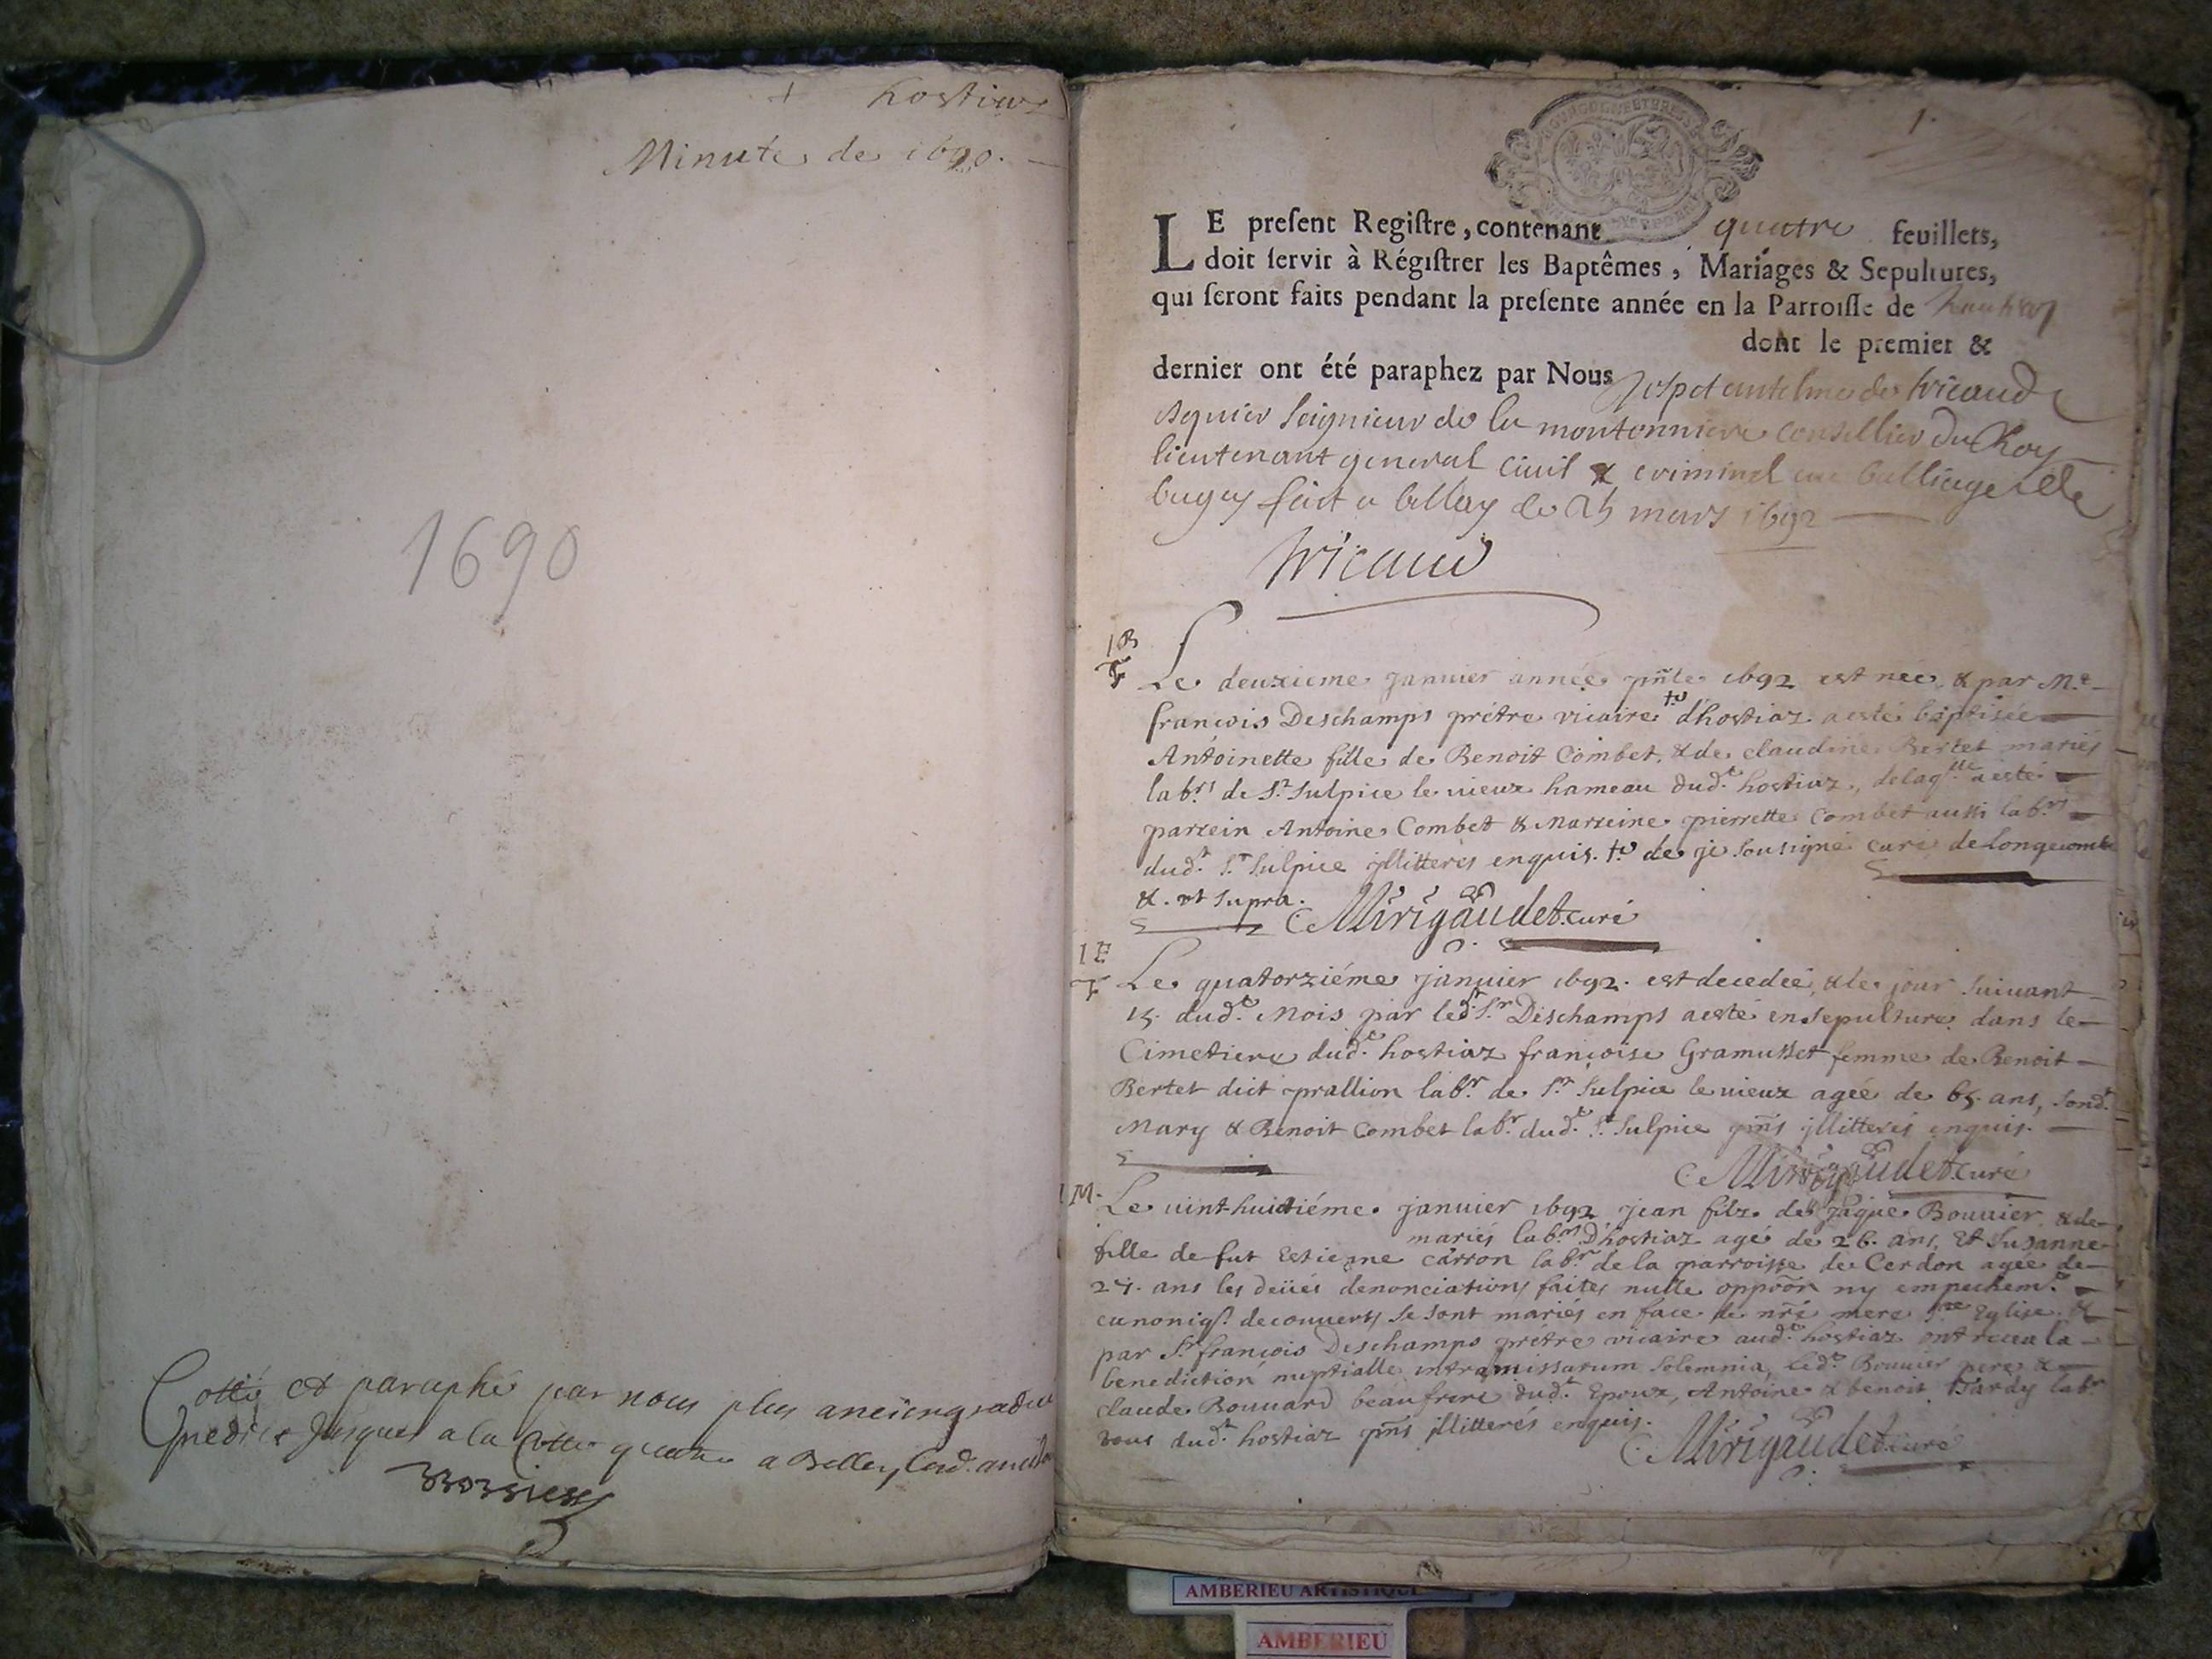 + hostiaz
Minute de 1690.
1690
Cotté et paraphé par nous plus ancien gradué
jusques a la Cotte quatre a Belley
1.
LE preſent Regiſtre, contenant quatre feuillets,
doit ſervir à Régiſtrer les Baptêmes, Mariages & Sepultures,
qui ſeront faits pendant la preſente année en la Parroiſſe de
dont le premier &
dernier ont été paraphez par Nous Joseph anthelme de tricaud
esquier seigneur de la montonniere conseillier du Roy
lieutenant general civil & criminel au balliage de
bugey fait a belley le mars 1692
tricaud
1 B
Le deuxieme janvier année pnte 1692 est née, & par Me
françois Deschamps prétre vicaire d'hostiaz a esté baptisée
Antoinette fille de Benoit Combet, & de claudine Bertet mariés
labrs de St Sulpice le vieux hameau dudt hostiaz, de laqlle a esté
parrein Antoine Combet & Marreine pierrette Combet aussi labrs
dudt St Sulpice jllitterés enquis. de je sousigné curé de Longecombe
&. ut supra. Mirigaudet curé
1 E
Le quatorziéme janvier 1692. est decedée, & le jour suivant
15. dudt Mois par ledt Sr Deschamps a esté ensepulturé dans le
Cimetiere dudt hostiaz françoise Gramusset femme de Benoit
Bertet dict prallion labr de St Sulpice le vieux agée de 65. ans, sondt
Mary & Benoit Combet labr dudt St Sulpice pnts jllitterés enquis.
Mirigaudet curé
1 M.
Le vint-huictiéme janvier 1692 jean filz de Jaque Bouvier & de
mariés labrs D'hostiaz agé de 26. ans, Et Susanne
fille de fut Estienne Carron labr de la parroisse de Cerdon agée de
ans les deües denonciations faites nulle opposon ny empechemt
canoniq. decouverts se sont mariés en face de nre mere Ste Eglise &
par Sr françois Deschamps prétre vicaire audt hostiaz ont receu la
benediction nuptialle intra missarum solemnia, ledt Bouvier pere &
claude Bouvard beaufrere dudt Epoux, Antoine & benoit Tardy labrs
tous dudt hostiaz pnts jllitterés enquis.
Mirigaudet curé
AMBERIEU ARTISTIQUE
AMBERIEU